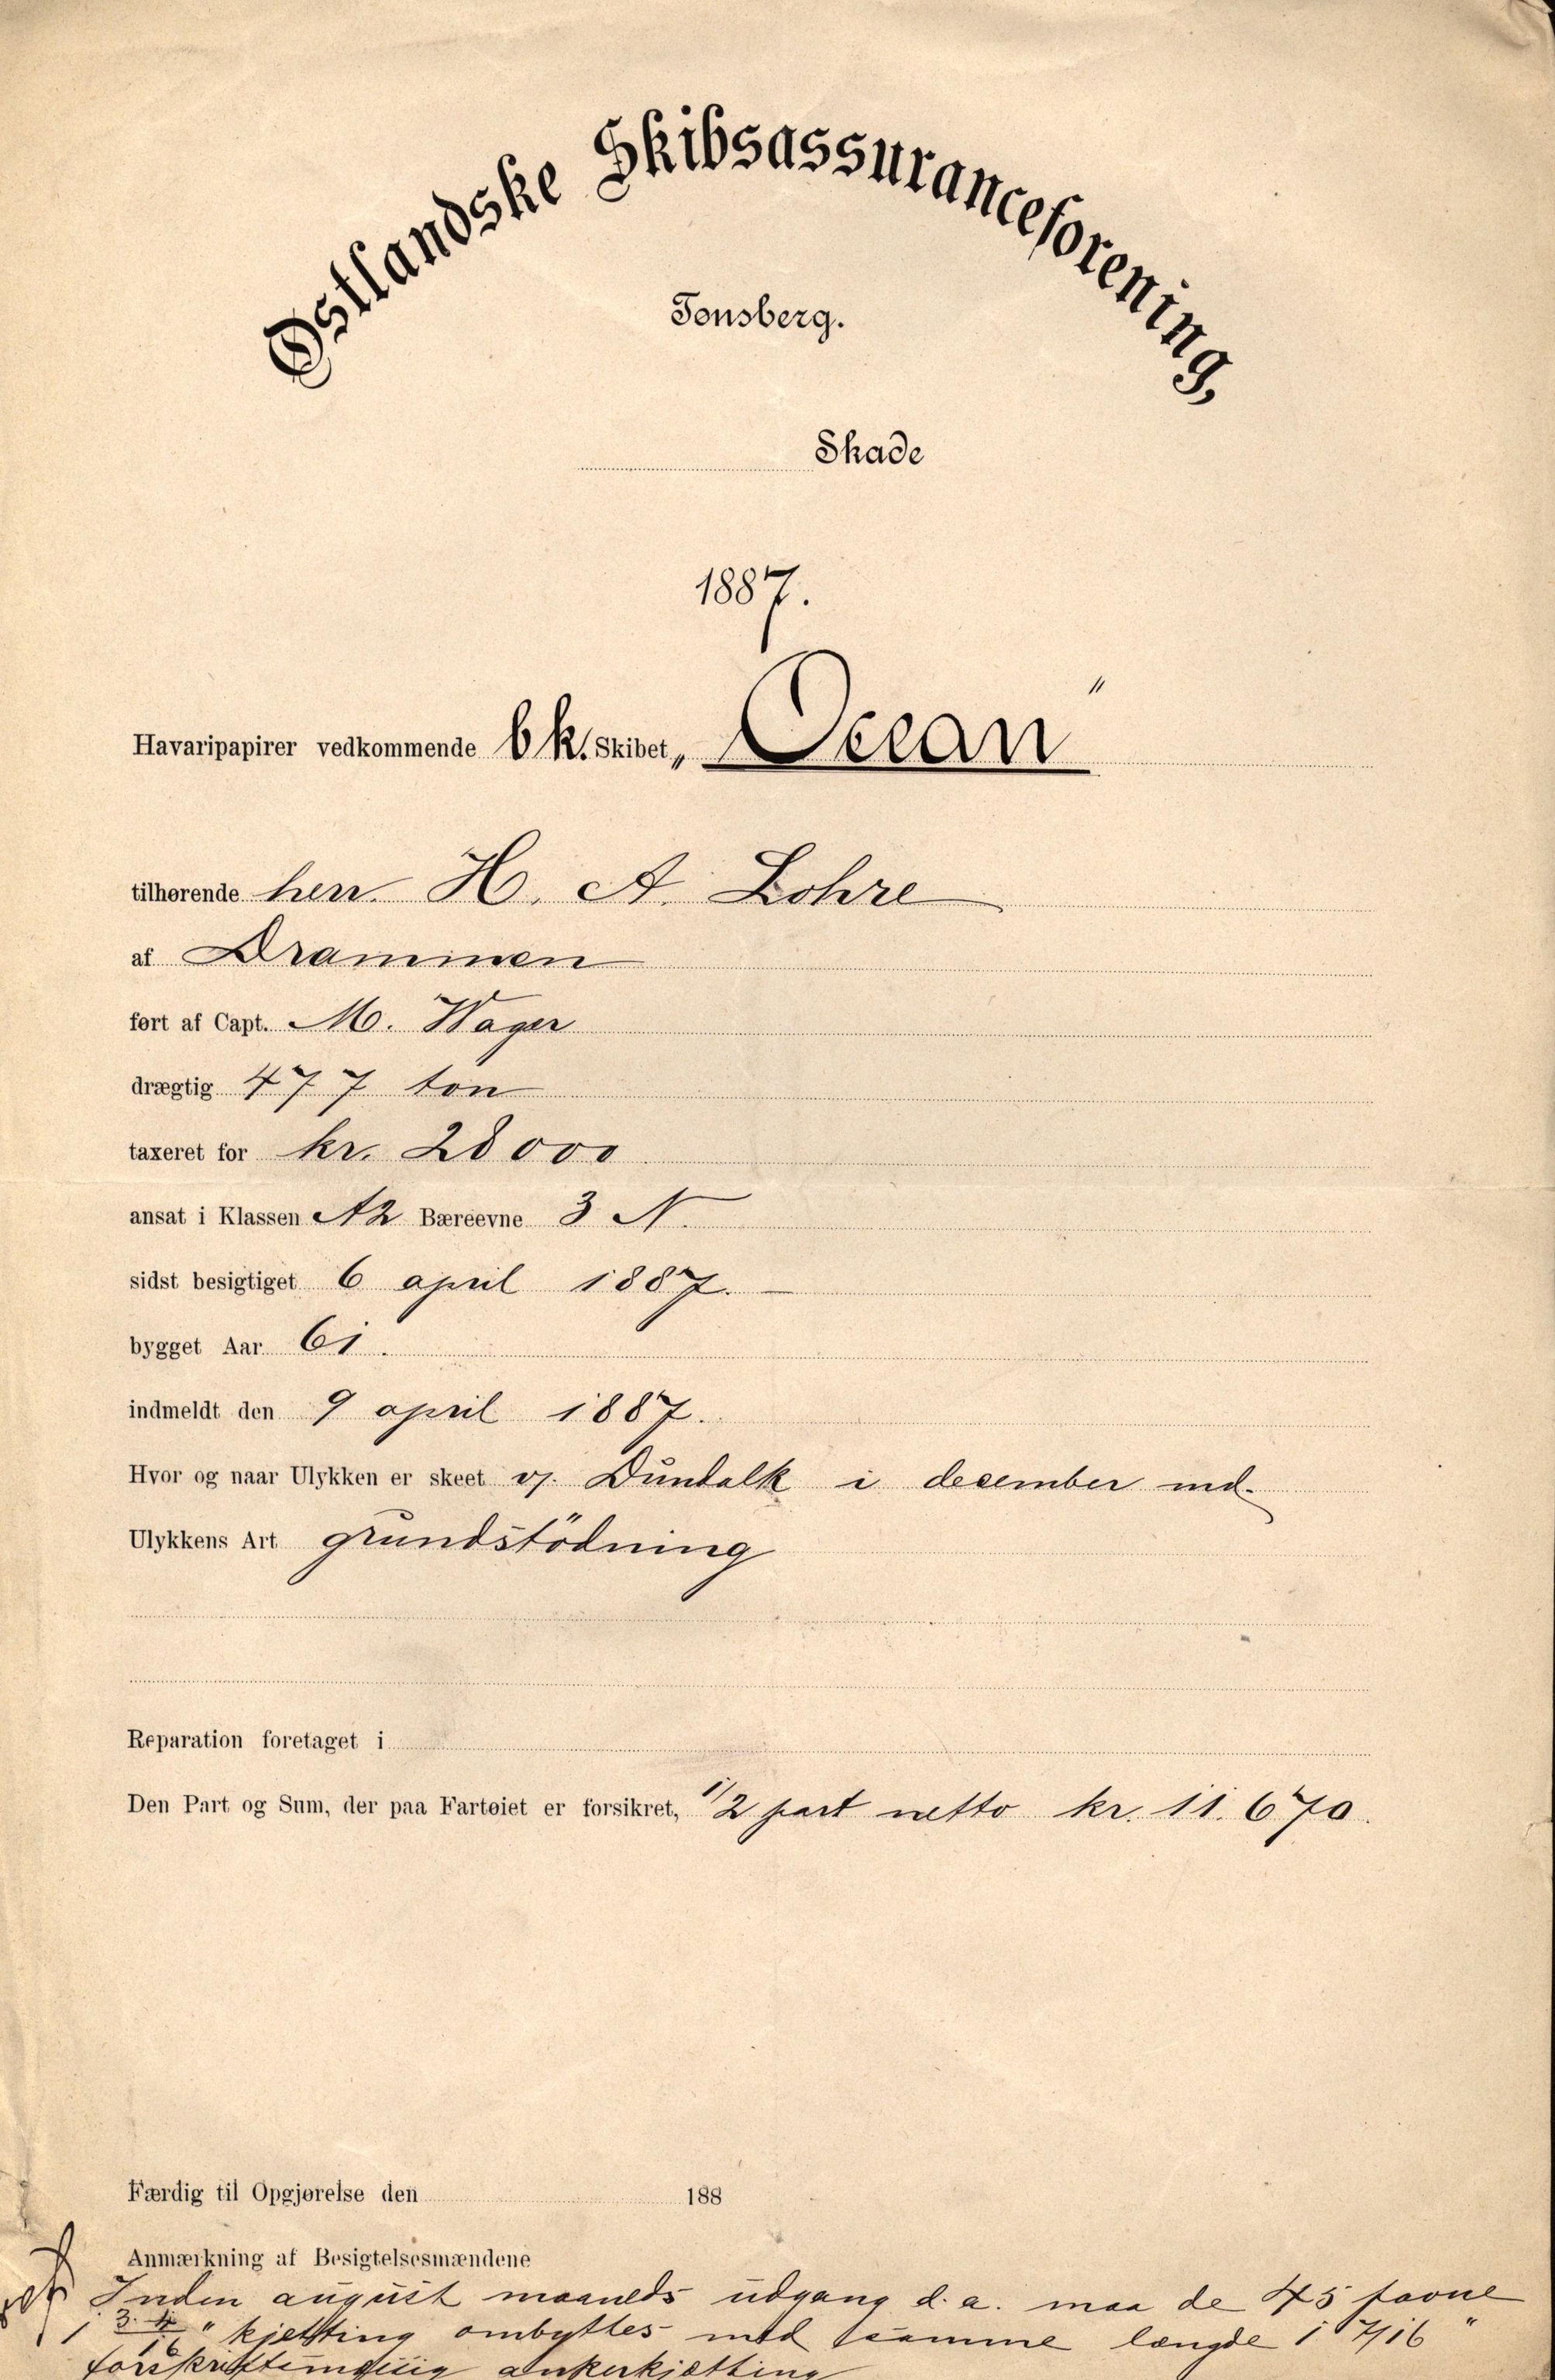 Østlandske Skibsassuranceforening,
Tønsberg.
Skade
1887.
Havaripapirer vedkommende bk. Skibet „Ocean"
tilhørende herr. H. A. Lohre
af Drammen
ført af Capt. M. Wager
drægtig 477 ton
taxeret for kr. 28000
ansat i Klassen A2 Bæreevne 3 N.
sidst besigtiget 6 april 1887.
bygget Aar 61.
indmeldt den 9 april 1887.
Hvor og naar Ulykken er skeet v/. Dundalk i december md.
Ulykkens Art grundstödning
Reparation foretaget i
Den Part og Sum, der paa Fartøiet er forsikret, 1/2 part netto kr. 11.670.
Færdig til Opgjørelse den 188
Anmærkning af Besigtelsesmændene
Inden august maaneds udgang d. a. maa de 45 favne
kjetting ombyttes med samme længde 1 7/16 "
forskriftsmæssig ankerkjetting